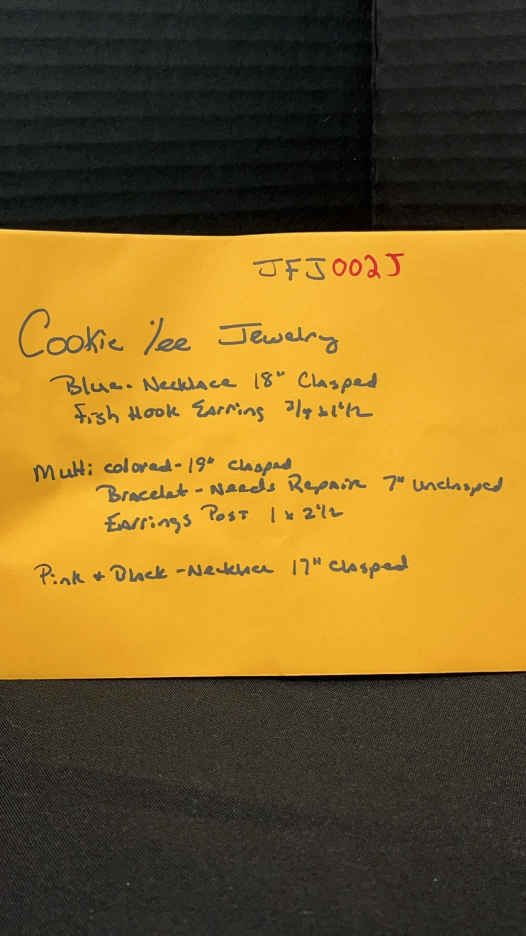 JFJ002J
Cookie Lee Jewelry
Blue - Necklace 18" Clasped
Fish Hook Earring 3/4 x 1 1/2
Multi colored - 19" clasped
Bracelet - Needs Repair 7" unclasped
Earrings Post 1 x 2 1/2
Pink + Black - Necklace 17" clasped